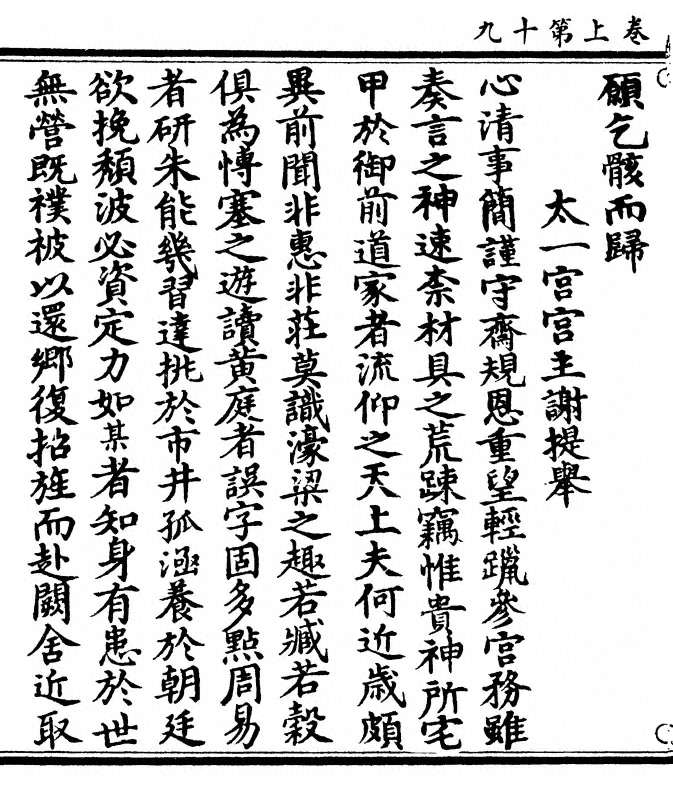 卷上第十九
願乞骸而歸
太一宮宮主謝提舉
心清事簡謹守齋規恩重望輕躐參宮務雖
奏言之神速柰材具之荒踈竊惟貴神所宅
甲於御前道家者流仰之天上夫何近歲頗
異前聞非惠非莊莫識濠梁之趣若臧若穀
俱為愽塞之遊讀黄庭者誤字固多點周易
者研朱能幾習達挑於市井孤涵養於朝廷
欲挽頽波必資定力如某者知身有患於世
無營既襆被以還鄉復招旌而赴闕舍近取